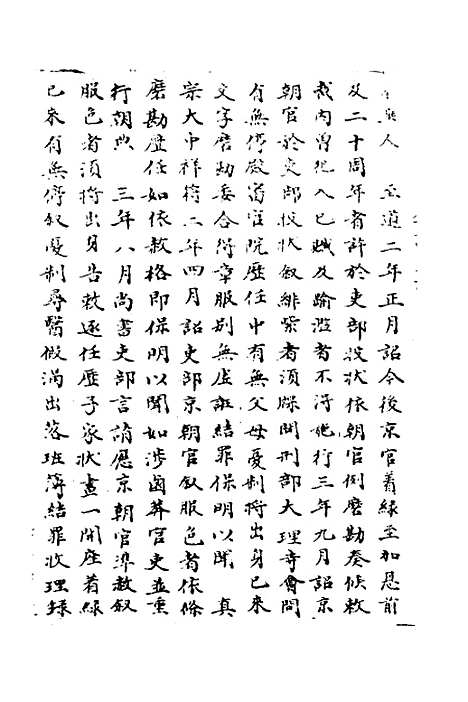 人　至道二年正月詔今後京官着綠至加恩前
及二十周年者許於吏部投狀依朝官例磨勘奏候敕
裁內曾犯入已贓及踰濫者不得施行三年九月詔京
朝官於吏部投狀敘緋紫者須牒問刑部大理寺會問
有無停殿審官院歷任中有無父母憂制將出身已來
文字磨勘委合得章服別無虛誑結罪保明以聞　真
宗大中祥符二年四月詔吏部京朝官敘服色者依條
磨勘歷任如依赦格即保明以聞如涉鹵莽官吏並重
行朝典　三年八月尚書吏部言請應京朝官準赦敘
服色者須將出身告敕逐任歷子家狀畫一開座着綠
已來有無停敘憂制尋醫假滿出落班簿結罪收理錄